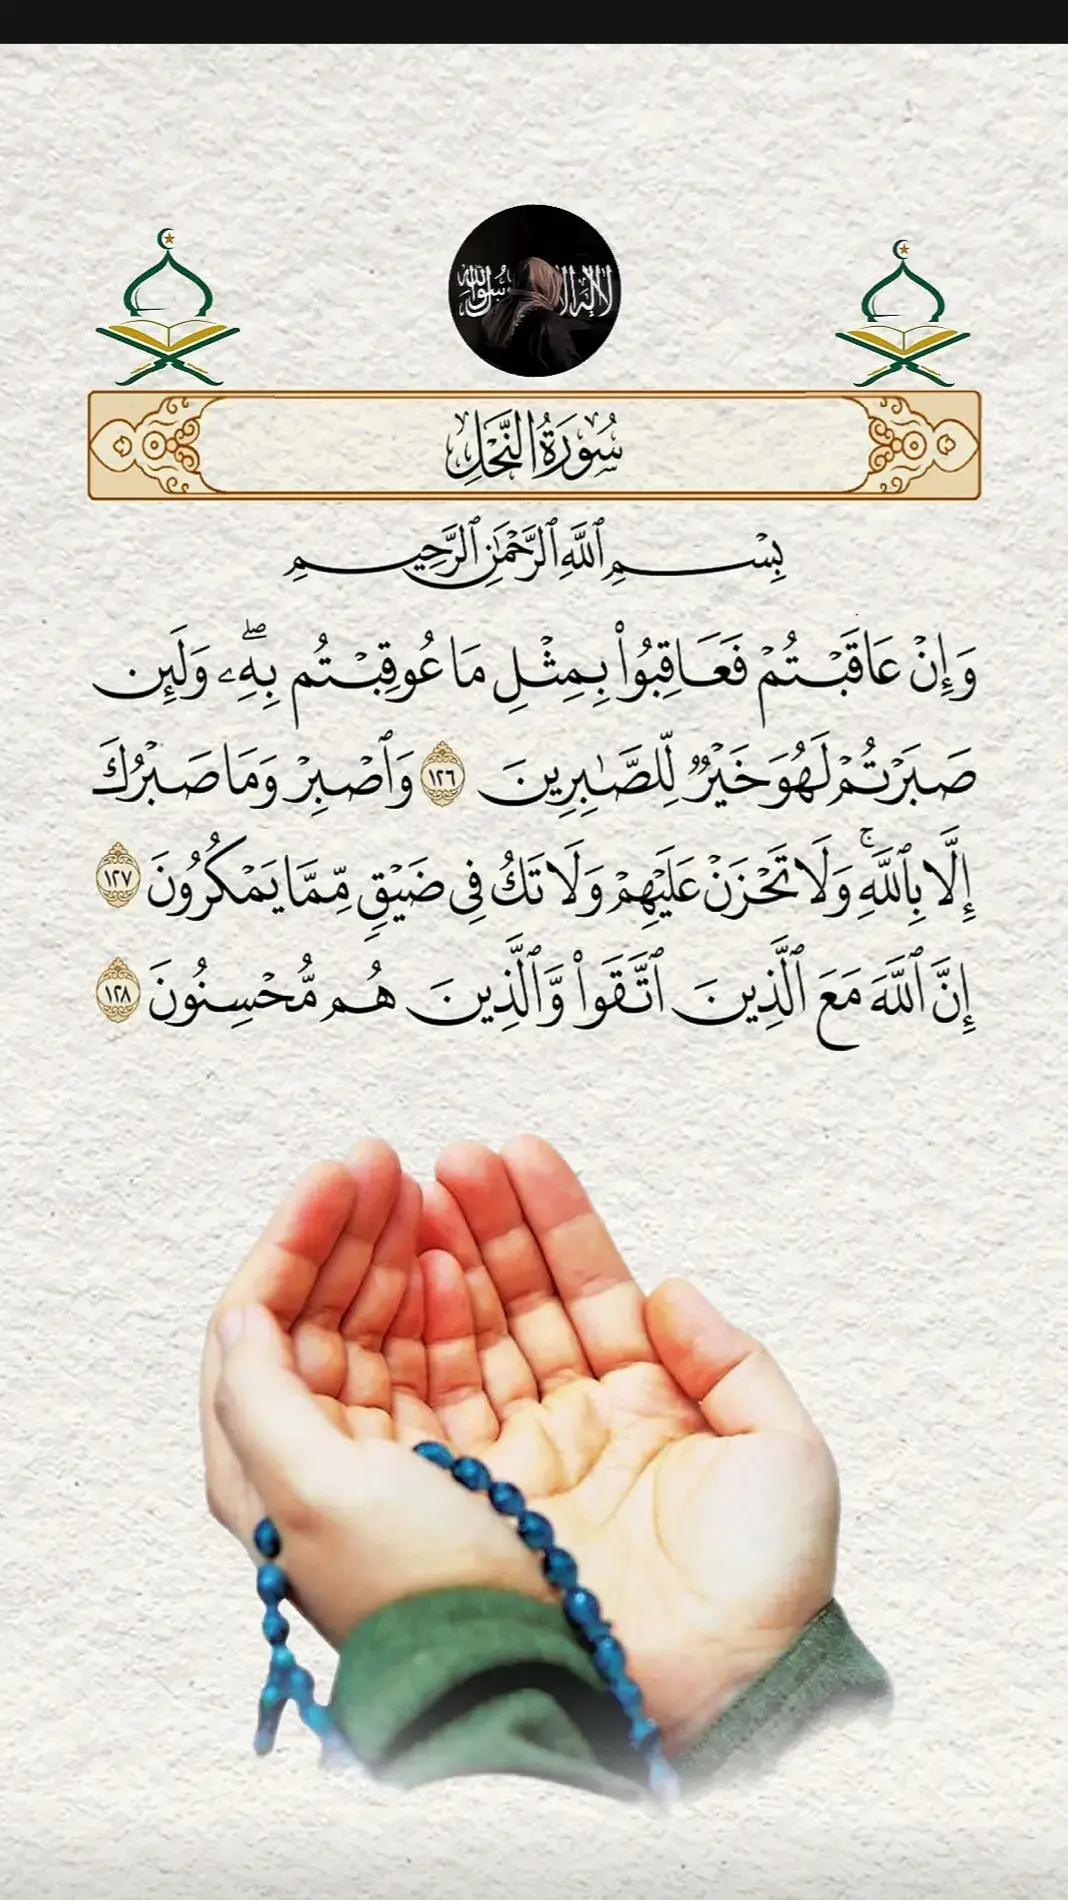 لا إله إلا رسول الله
سُورَةُ النَّحْلِ
بِسْمِ ٱللَّهِ ٱلرَّحْمَٰنِ ٱلرَّحِيمِ
وَإِنْ عَاقَبْتُمْ فَعَاقِبُوا۟ بِمِثْلِ مَا عُوقِبْتُم بِهِۦ ۖ وَلَئِن
صَبَرْتُمْ لَهُوَ خَيْرٌ لِّلصَّٰبِرِينَ ١٢٦ وَٱصْبِرْ وَمَا صَبْرُكَ
إِلَّا بِٱللَّهِ ۚ وَلَا تَحْزَنْ عَلَيْهِمْ وَلَا تَكُ فِى ضَيْقٍ مِّمَّا يَمْكُرُونَ ١٢٧
إِنَّ ٱللَّهَ مَعَ ٱلَّذِينَ ٱتَّقَوا۟ وَّٱلَّذِينَ هُم مُّحْسِنُونَ ١٢٨